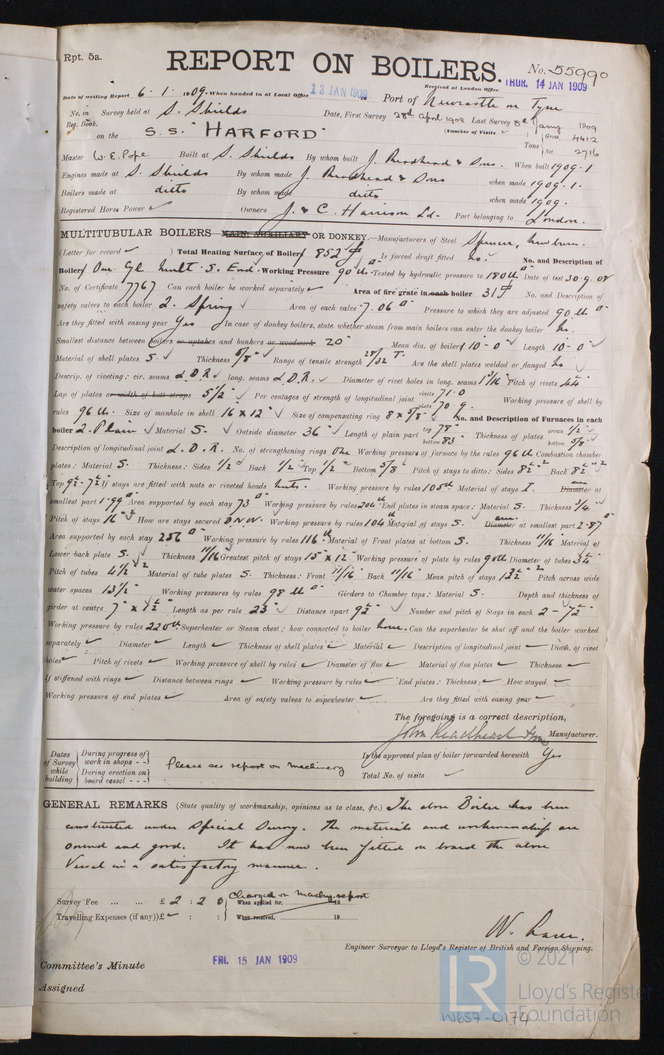 Rpt. 5a.
REPORT ON BOILERS.
No. 55990
Received at London Office THUR. 14 JAN 1909
Date of writing Report 6.1.1909. When handed in at Local Office 13 JAN 1909 Port of Newcastle on Tyne
No. in Reg. Book. Survey held at S. Shields Date, First Survey 28th April 1908 Last Survey 8th Jany 1909
on the S.S. "HARFORD" (Number of Visits ) Tons Gross 4412 Net 2716
Master W. E. Pope Built at S. Shields By whom built J. Readhead & Sons. When built 1909-1
Engines made at S. Shields By whom made J. Readhead & Sons when made 1909-1.
Boilers made at ditto By whom made ditto when made 1909.
Registered Horse Power Owners J. & C. Harrison Ld. Port belonging to London.
MULTITUBULAR BOILERS MAIN, AUXILIARY OR DONKEY.—Manufacturers of Steel Spencer, Newburn.
(Letter for record ) Total Heating Surface of Boiler 852 Is forced draft fitted no. No. and Description of
Boiler One Cyl Mult. S. End. Working Pressure 90 lb Tested by hydraulic pressure to 180 lb Date of test 30.9.08
No. of Certificate 7767 Can each boiler be worked separately Area of fire grate in each boiler 31 No. and Description of
safety valves to each boiler 2. Spring Area of each valve 7.06 Pressure to which they are adjusted 90 lb
Are they fitted with easing gear Yes In case of donkey boilers, state whether steam from main boilers can enter the donkey boiler No.
Smallest distance between boilers or uptakes and bunkers or woodwork 20" Mean dia. of boiler 10'-0" Length 10'-0"
Material of shell plates S. Thickness 5/8" Range of tensile strength 28/32 T. Are the shell plates welded or flanged No
Descrip. of riveting: cir. seams L.D.R. long. seams L.D.R. Diameter of rivet holes in long. seams 13/16" Pitch of rivets
Lap of plates or width of butt straps 5 1/2" Per centages of strength of longitudinal joint rivets 71.0 plate 70.9. Working pressure of shell by
rules 96 lb. Size of manhole in shell 16" x 12" Size of compensating ring 8" x 5/8" No. and Description of Furnaces in each
boiler 2. Plain Material S. Outside diameter 36" Length of plain part top 78" bottom 83" Thickness of plates crown 1/2" bottom 5/8"
Description of longitudinal joint L.D.R. No. of strengthening rings One Working pressure of furnace by the rules 96 lb Combustion chamber
plates: Material S. Thickness: Sides 1/2" Back 1/2" Top 1/2" Bottom 5/8" Pitch of stays to ditto: Sides 8 1/2" Back 8 1/2"
Top 9 1/2"-7 1/2" If stays are fitted with nuts or riveted heads Nuts. Working pressure by rules 105 lb Material of stays I. Diameter at
smallest part 1.99 Area supported by each stay 73 Working pressure by rules 204 lb End plates in steam space: Material S. Thickness 3/4"
Pitch of stays 16" How are stays secured D.N.W. Working pressure by rules 104 lb Material of stays S. Diameter at smallest part 2.87
Area supported by each stay 256 Working pressure by rules 116 lb Material of Front plates at bottom S. Thickness 11/16" Material of
Lower back plate S. Thickness 11/16" Greatest pitch of stays 15" x 12" Working pressure of plate by rules 90 lb Diameter of tubes 3 1/4"
Pitch of tubes 4 1/2" Material of tube plates S. Thickness: Front 11/16" Back 11/16" Mean pitch of stays 13 1/2" Pitch across wide
water spaces 13 1/2" Working pressures by rules 98 lb Girders to Chamber tops: Material S. Depth and thickness of
girder at centre 7" x 1 1/2" Length as per rule 23" Distance apart 9 1/2" Number and pitch of Stays in each 2 - 7 1/2"
Working pressure by rules 220 lb Superheater or Steam chest; how connected to boiler None. Can the superheater be shut off and the boiler worked
separately Diameter Length Thickness of shell plates Material Description of longitudinal joint Diam. of rivet
holes Pitch of rivets Working pressure of shell by rules Diameter of flue Material of flue plates Thickness
If stiffened with rings Distance between rings Working pressure by rules End plates: Thickness How stayed
Working pressure of end plates Area of safety valves to superheater Are they fitted with easing gear
The foregoing is a correct description,
John Readhead & Sons Manufacturer.
Dates of Survey while building During progress of work in shops - - During erection on board vessel - - - Please see report on Machinery
Is the approved plan of boiler forwarded herewith Yes
Total No. of visits
GENERAL REMARKS (State quality of workmanship, opinions as to class, &c.) The above Boiler has been
constructed under Special Survey. The materials and workmanship are
sound and good. It has now been fitted on board the above
Vessel in a satisfactory manner.
Survey Fee ... ... £ 2 : 2 : 0 Charged on Machy. report When applied for, 19
Travelling Expenses (if any) £ : : When received, 19
Engineer Surveyor to Lloyd's Register of British and Foreign Shipping.
Committee's Minute FRI. 15 JAN 1909
Assigned
LR © 2021 Lloyd's Register Foundation
W657-0174